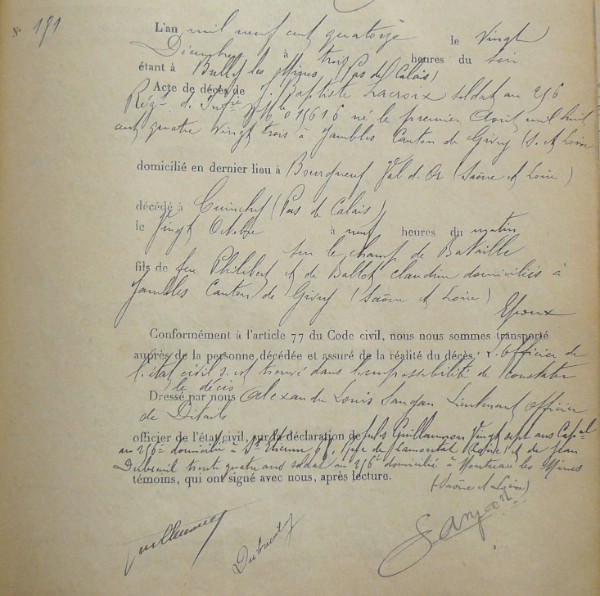 N° 191
L'an mil neuf cent quatorze le Vingt
Décembre à trois heures du soir
étant à Bully les Mines (Pas de Calais)
Acte de décès de J. Baptiste Lacroix soldat au 256
Rég. d. Inf. né le premier Avril mil huit
cent quatre vingt trois à Jambles Canton de Givry (S. et Loire
domicilié en dernier lieu à Bourgneuf Val d'Or (Saône et Loire)
décédé à Cuinchy (Pas de Calais)
le Vingt Octobre à neuf heures du matin
sur le champ de Bataille
fils de feu Philibert et de Ballot Claudine domiciliés à
Jambles Canton de Givry (Saône et Loire)
Epoux
Conformément à l'article 77 du Code civil, nous nous sommes transporté
auprès de la personne décédée et assuré de la réalité du décès. L'officier de
l'état civil s'est trouvé dans l'impossibilité de constater
le décès
Dressé par nous Alexandre Louis Lieutenant officier
de Détails
officier de l'état civil, sur la déclaration de Guillaumon Vingt sept ans
au 256e domicilié à St Etienne 6, rue de et de Jean
Dubreuil trente quatre ans soldat au 256e domicilié à Montceau les Mines
(Saône et Loire)
témoins, qui ont signé avec nous, après lecture.